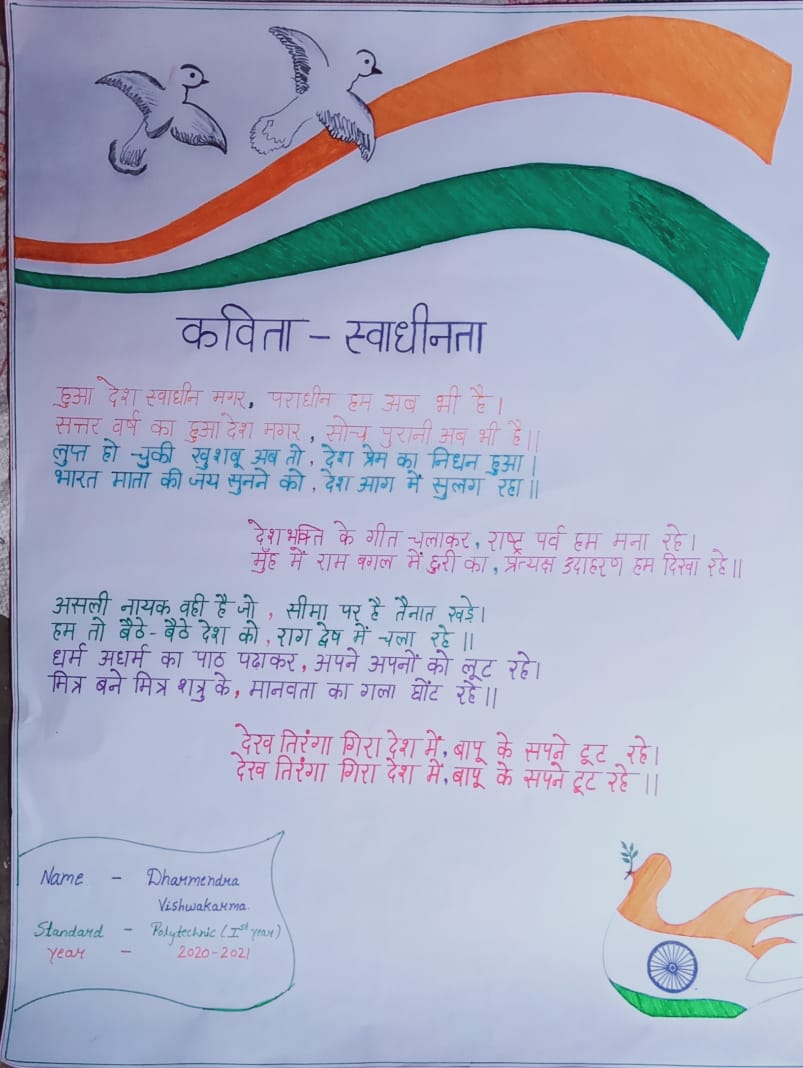 कविता - स्वाधीनता
हुआ देश स्वाधीन मगर, पराधीन हम अब भी है।
सत्तर वर्ष का हुआ देश मगर, सोच पुरानी अब भी है।।
लुप्त हो चुकी खुशबू अब तो, देश प्रेम का निधन हुआ।
भारत माता की जय सुनने को, देश आग में सुलग रहा।।
देशभक्ति के गीत चलाकर, राष्ट्र पर्व हम मना रहे।
मुँह में राम बगल में छुरी का, प्रत्यक्ष उदाहरण हम दिखा रहे।।
असली नायक वही है जो, सीमा पर है तैनात खड़े।
हम तो बैठे-बैठे देश को, राग द्वेष में चला रहे।।
धर्म अधर्म का पाठ पढ़ाकर, अपने अपनों को लूट रहे।
मित्र बने मित्र शत्रु के, मानवता का गला घोंट रहे।।
देख तिरंगा गिरा देश में, बापू के सपने टूट रहे।
देख तिरंगा गिरा देश में, बापू के सपने टूट रहे।।
Name - Dharmendra
Vishwakarma.
Standard - Polytechnic (Ist year)
Year - 2020-2021